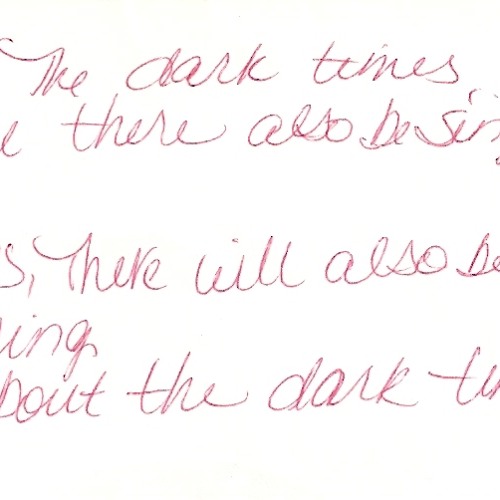 The dark times,
e there also be sin
s, There will also be
ing
bout the dark ti